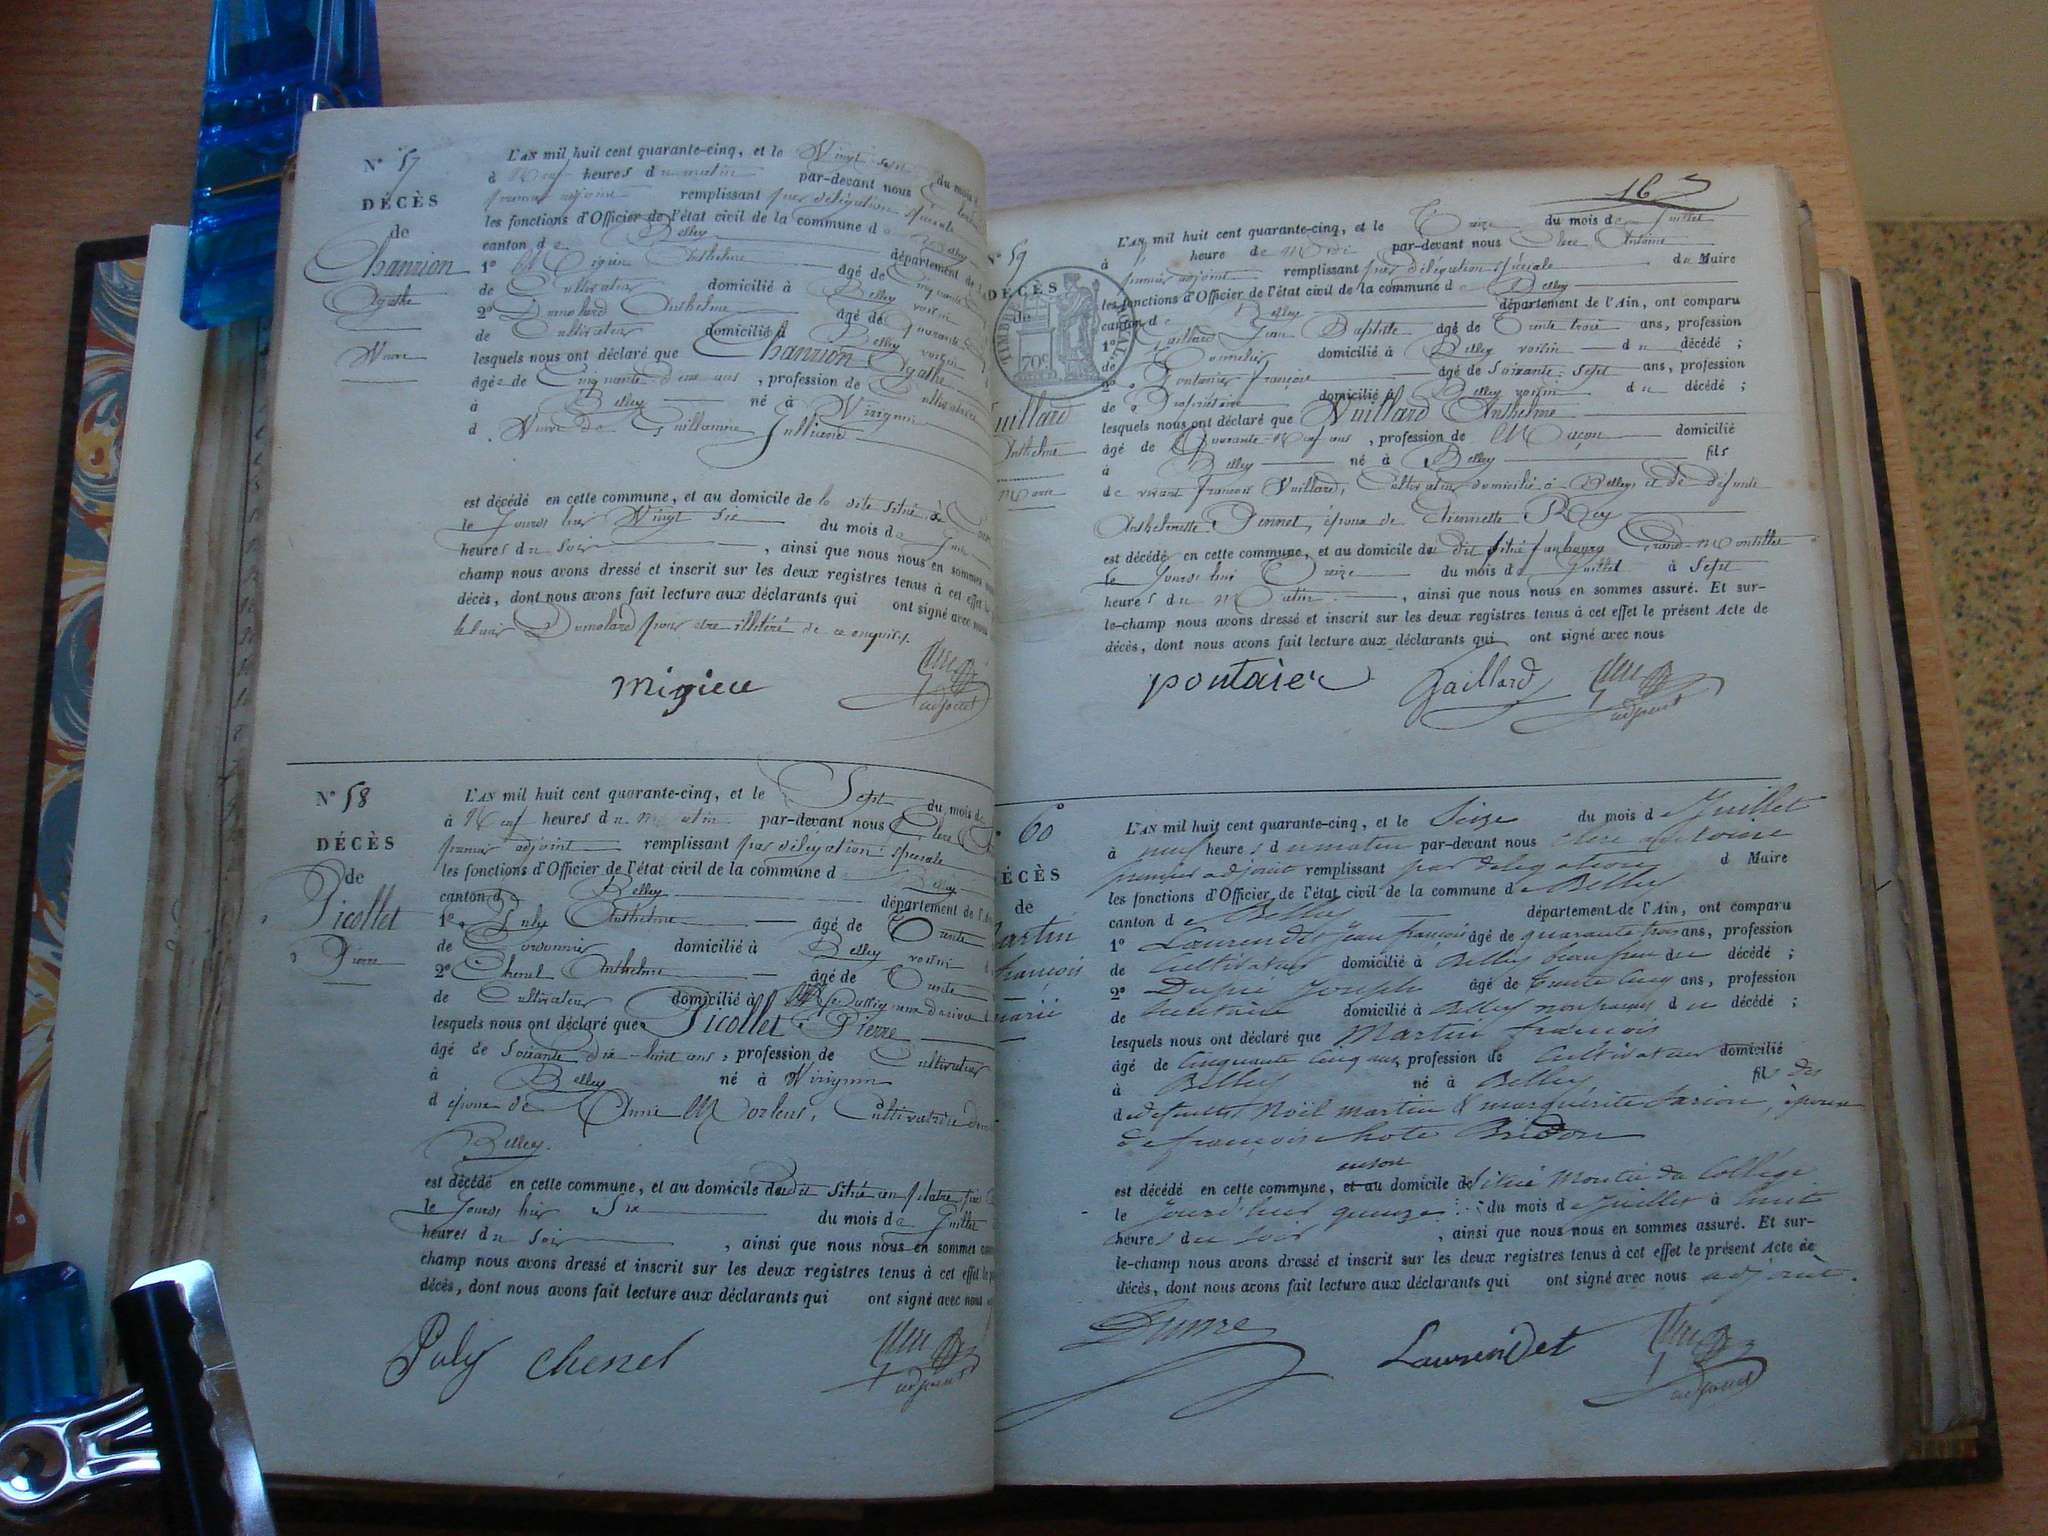 N° 57
DÉCÈS
de
Chanrion
Agathe
Veuve
L'AN mil huit cent quarante-cinq, et le Vingt sept du mois
à Neuf heures du matin par-devant nous
premier adjoint remplissant par délégation spéciale
les fonctions d'Officier de l'état civil de la commune de Belley
canton de Belley département de
1° Anthelme âgé de Cinquante
de Cultivateur domicilié à Belley voisin
2° Dumolard Anthelme âgé de quarante
de Cultivateur domicilié à Belley voisin
lesquels nous ont déclaré que Chanrion Agathe
âgée de Cinquante deux ans, profession de Cultivatrice
à Belley né à Virignin
d. Veuve de Guillaume Julliand
est décédé en cette commune, et au domicile de la dite situé
le Jourd hier Vingt six du mois de
heures du soir, ainsi que nous nous en sommes
champ nous avons dressé et inscrit sur les deux registres tenus à cet effet le
décès, dont nous avons fait lecture aux déclarants qui ont signé avec nous
Dumolard pour être illitéré de ce enquis
adjoint
N° 58
DÉCÈS
de
Picollet
Pierre
L'AN mil huit cent quarante-cinq, et le Sept du mois de
à Neuf heures du matin par-devant nous Clerc
premier adjoint remplissant par délégation spéciale
les fonctions d'Officier de l'état civil de la commune d Belley
canton d Belley département de l'
1° Puly Anthelme âgé de Trente
de Cordonnier domicilié à Belley voisin
2° Chenel Anthelme âgé de Trente
de Cultivateur domicilié à
lesquels nous ont déclaré que Picollet Pierre
âgé de soixante dix-huit ans, profession de Cultivateur
à Belley né à Virignin
d époux de Anne Cultivatrice
Belley.
est décédé en cette commune, et au domicile du dit situé
le Jourd hier Six du mois de Juillet
heures du soir, ainsi que nous nous en sommes
champ nous avons dressé et inscrit sur les deux registres tenus à cet effet le
décès, dont nous avons fait lecture aux déclarants qui ont signé avec nous
Puly Chenel adjoint
16
59
DÉCÈS
de
TIMBRE ROYAL
70c
uillard
Anthelme
L'AN mil huit cent quarante-cinq, et le Treize du mois de Juillet
à heure de Midi par-devant nous Clerc Antoine
premier adjoint remplissant par délégation spéciale du Maire
les fonctions d'Officier de l'état civil de la commune de Belley
canton de Belley département de l'Ain, ont comparu
1° Gaillard Jean Baptiste âgé de Trente trois ans, profession
de Tonnelier domicilié à Belley voisin du décédé ;
2° Pontanier François âgé de soixante-sept ans, profession
de Propriétaire domicilié à Belley voisin du décédé ;
lesquels nous ont déclaré que Vuillard Anthelme
âgé de Quarante-Neuf ans, profession de Maçon domicilié
à Belley né à Belley fils
de vivant François Vuillard, Cultivateur domicilié à Belley, et de défunte
Anthelmette époux de Etiennette Rey
est décédé en cette commune, et au domicile du dit situé faubourg Grand-
le Jourd hui Treize du mois de Juillet à Sept
heures du Matin, ainsi que nous nous en sommes assuré. Et sur-
le-champ nous avons dressé et inscrit sur les deux registres tenus à cet effet le présent Acte de
décès, dont nous avons fait lecture aux déclarants qui ont signé avec nous
Gaillard adjoint
60
ÉCÈS
de
artin
rançois
L'AN mil huit cent quarante-cinq, et le Seize du mois de Juillet
à neuf heures du matin par-devant nous Clerc antoine
premier adjoint remplissant par délégation d Maire
les fonctions d'Officier de l'état civil de la commune de Belley
canton de Belley département de l'Ain, ont comparu
1° Laurendet Jean françois âgé de quarante trois ans, profession
de Cultivateur domicilié à Belley beau frère du décédé ;
2° Dupré Joseph âgé de trente cinq ans, profession
de Secrétaire domicilié à Belley non parent du décédé ;
lesquels nous ont déclaré que Martin françois
âgé de Cinquante cinq ans, profession de Cultivateur domicilié
à Belley né à Belley fils des
défunts Noël martin & marguerite époux
de françoise Bridon
en son
est décédé en cette commune, et au domicile situé Montée du Collége
le Jourd'hui quinze du mois de Juillet à huit
heures du soir, ainsi que nous nous en sommes assuré. Et sur-
le-champ nous avons dressé et inscrit sur les deux registres tenus à cet effet le présent Acte de
décès, dont nous avons fait lecture aux déclarants qui ont signé avec nous adjoint.
Laurendet adjoint